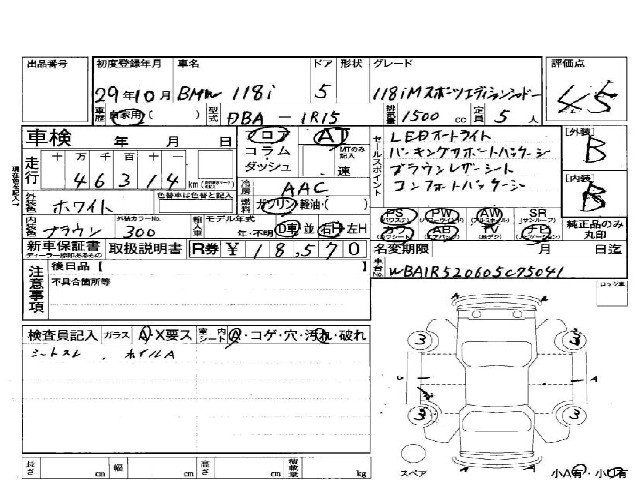 出品番号 初度登録年月 車名 ドア 形状 グレード 評価点
29年10月 BMW 118i 5 118i Mスポーツエディションシャドー 4.5
車歴 自家用( ) 型式 DBA-1R15 排気量 1500 cc 定員 5 人
車検 年 月 日 フロア AT
コラム MTのみ記入
ダッシュ 速
走行 十 万 千 百 十 一
46314 km
セールスポイント LEDオートライト
パーキングサポートパッケージ
ブラウンレザーシート
コンフォートパッケージ
[外装] B
[内装] B
冷房 AAC
外装色 ホワイト 色替車は色替と記入 燃料 ガソリン 軽油・( )
内装色 ブラウン 外装カラーNo. 300 輸入車 モデル年式 年・不明 D車 並 右H・左H
PS PW AW SR
(パワステ) (サンルーフ)
カワ AB TV ナビ
純正品のみ丸印
新車保証書 取扱説明書 R券 ¥18,570
名変期限 月 日迄
注意事項 後日品【 】
不具合箇所等
車台No. WBA1R520605C75041
検査員記入 ガラス A・X要ス 室内シート ・コゲ・穴・汚れ・破れ
シートスレ ホイルA
3 3
3 3
スペア
小A有・小U有
長さ cm 幅 cm 高さ cm 積載量 kg